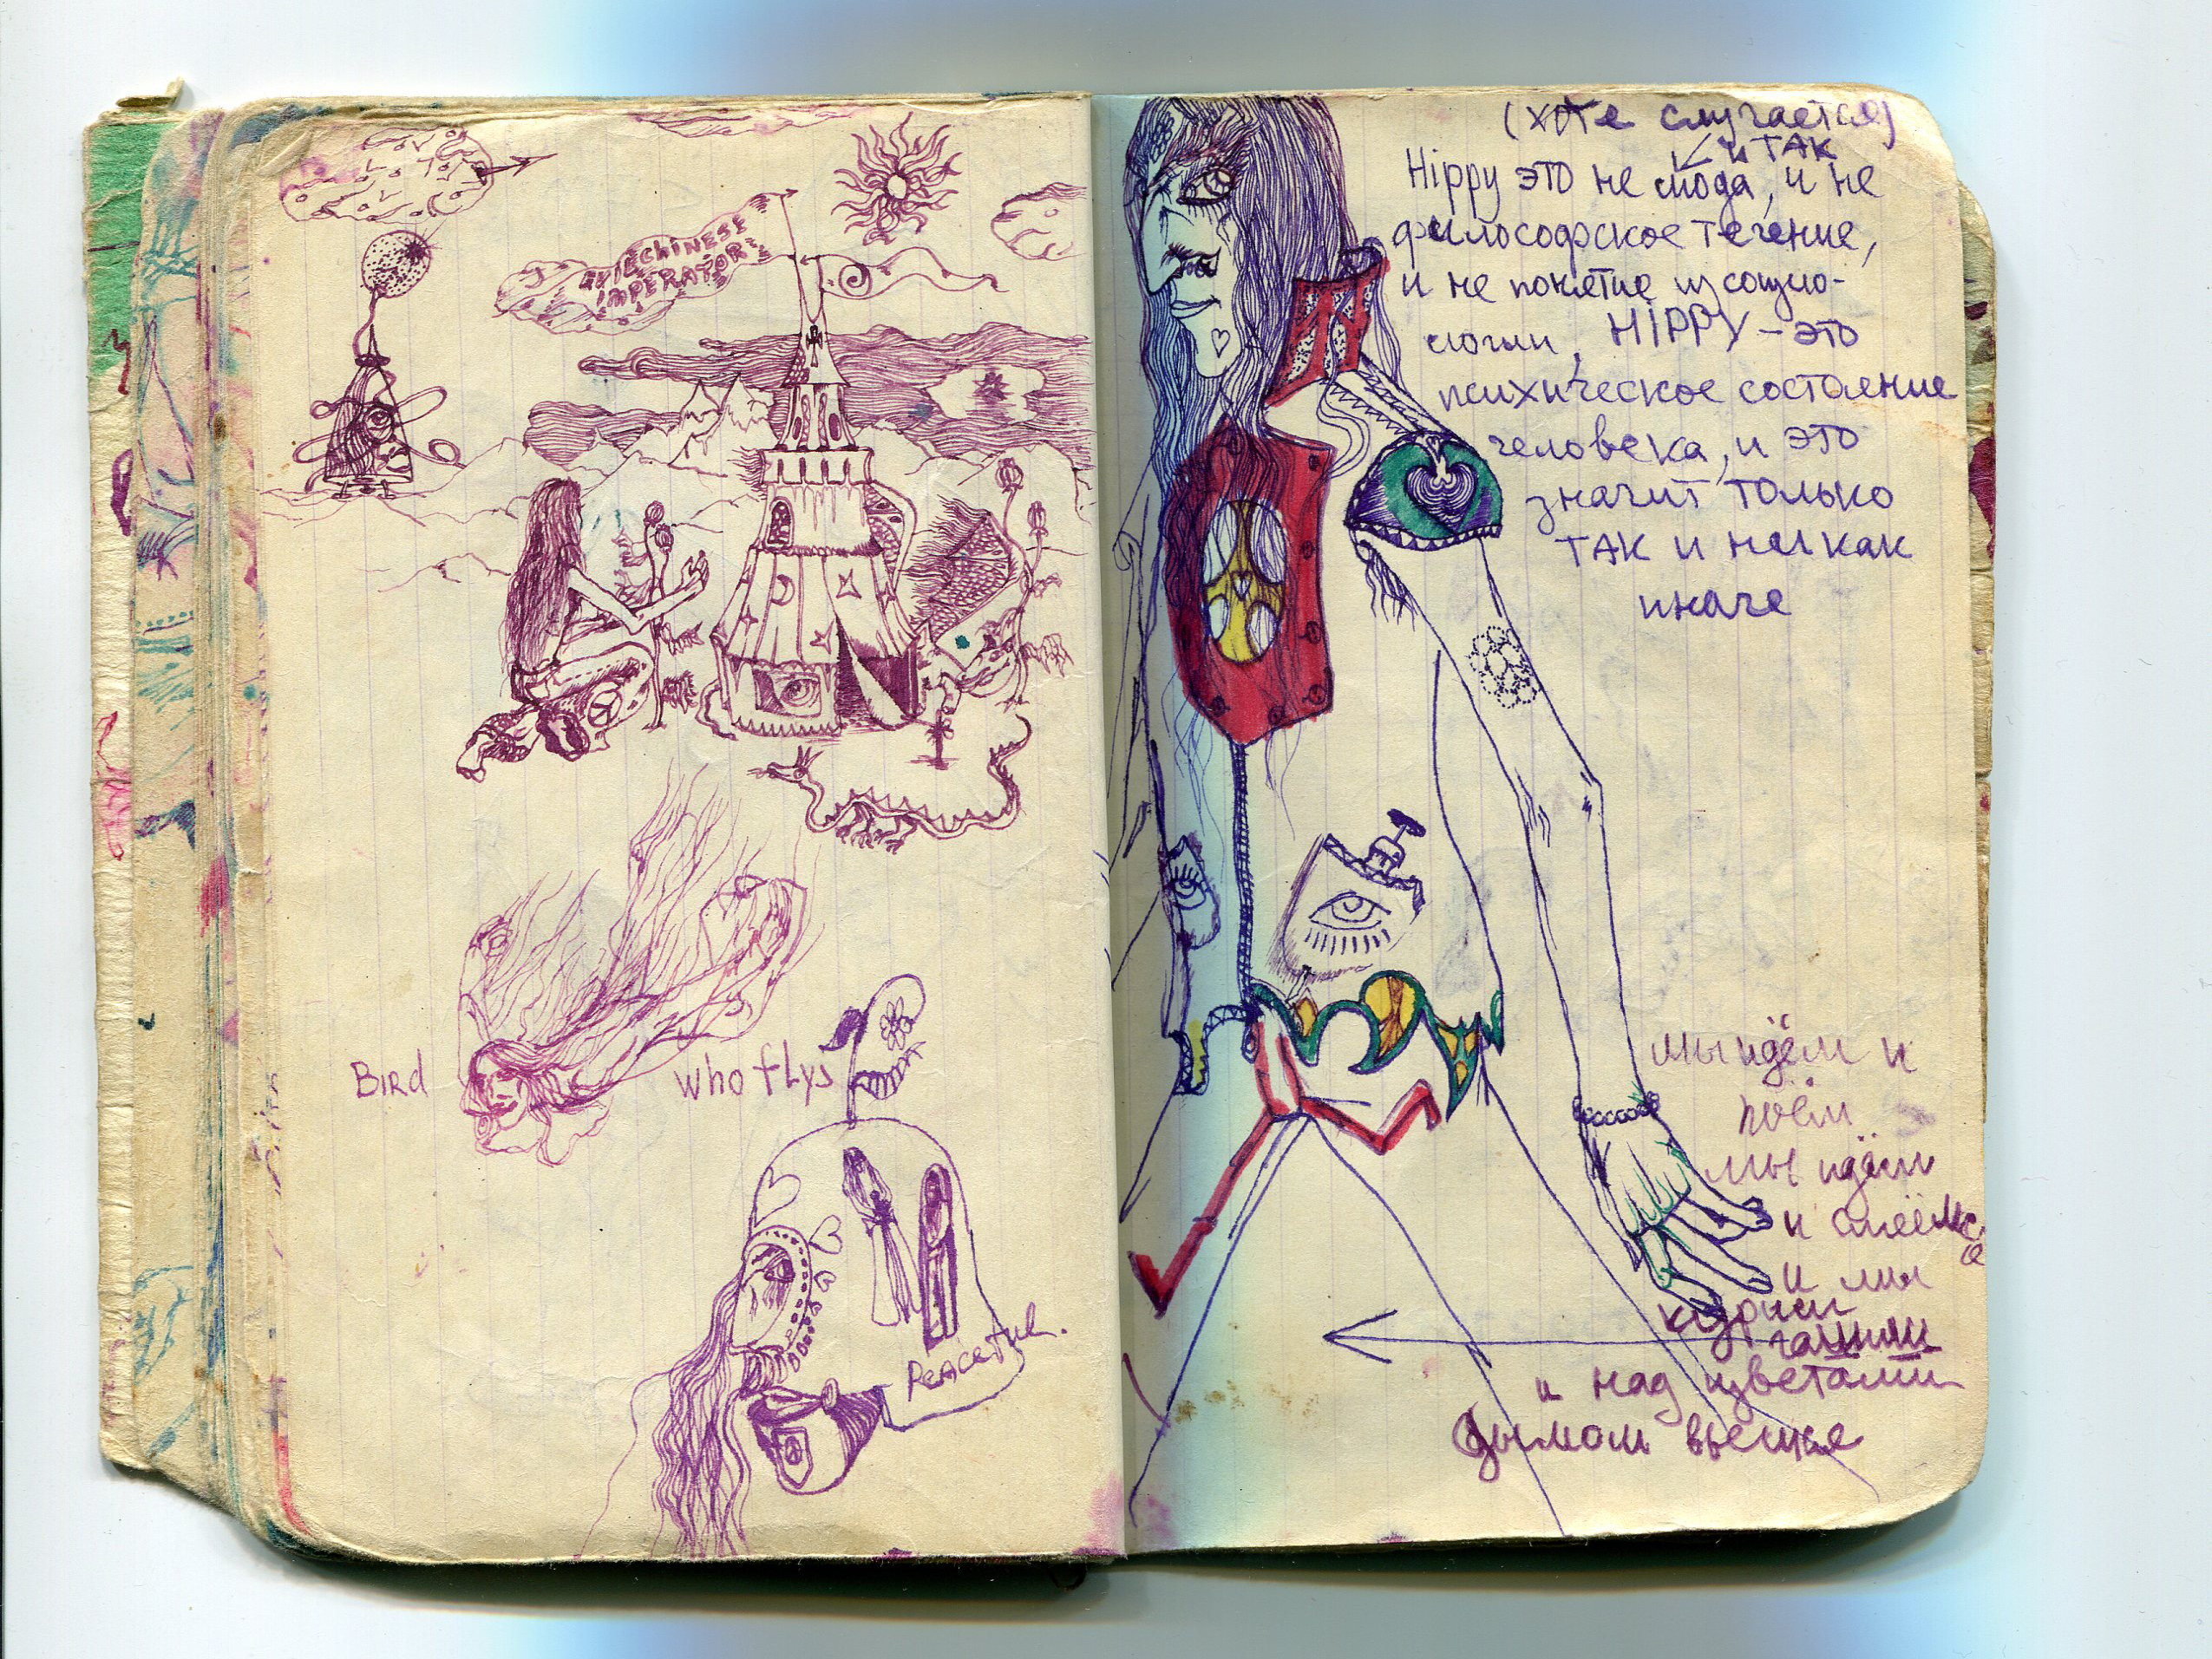 CHINESE
IMPERATOR
BIRD who flys
Peaceful.
(хотя случается)
и ТАК
Hippy это не мода, и не
философское течение,
и не понятие из социо-
логии, HIPPY – это
психическое состояние
человека, и это
значит только
ТАК и никак
иначе
мы идём и
поём
мы идём
и смеёмся
и мы
курим
и над цветами
дымом вьемся